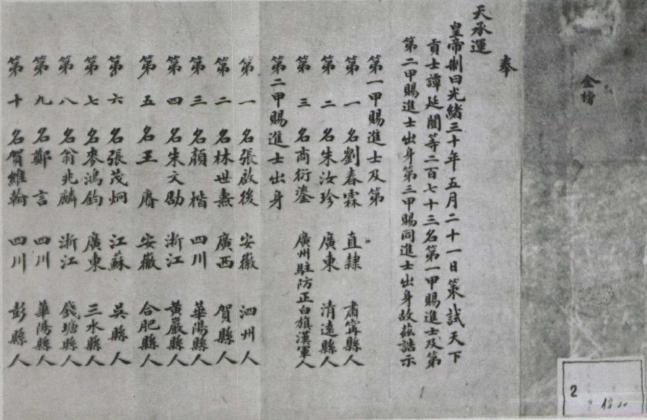 金榜
奉
天承運
皇帝制曰光緒三十年五月二十一日策試天下
貢士譚延闓等二百七十三名第一甲賜進士及第
第二甲賜進士出身第三甲賜同進士出身故茲誥示
第一甲賜進士及第
第一名劉春霖 直隸 肅寧縣人
第二名朱汝珍 廣東 清遠縣人
第三名商衍鎏 廣州駐防正白旗漢軍人
第二甲賜進士出身
第一名張啟後 安徽 泗州人
第二名林世燾 廣西 賀縣人
第三名顏楷 四川 華陽縣人
第四名朱文劭 浙江 黃巖縣人
第五名王 安徽 合肥縣人
第六名張茂炯 江蘇 吳縣人
第七名麥鴻鈞 廣東 三水縣人
第八名翁兆麟 浙江 錢塘縣人
第九名鄭言 四川 華陽縣人
第十名賀維翰 四川 彭縣人
2